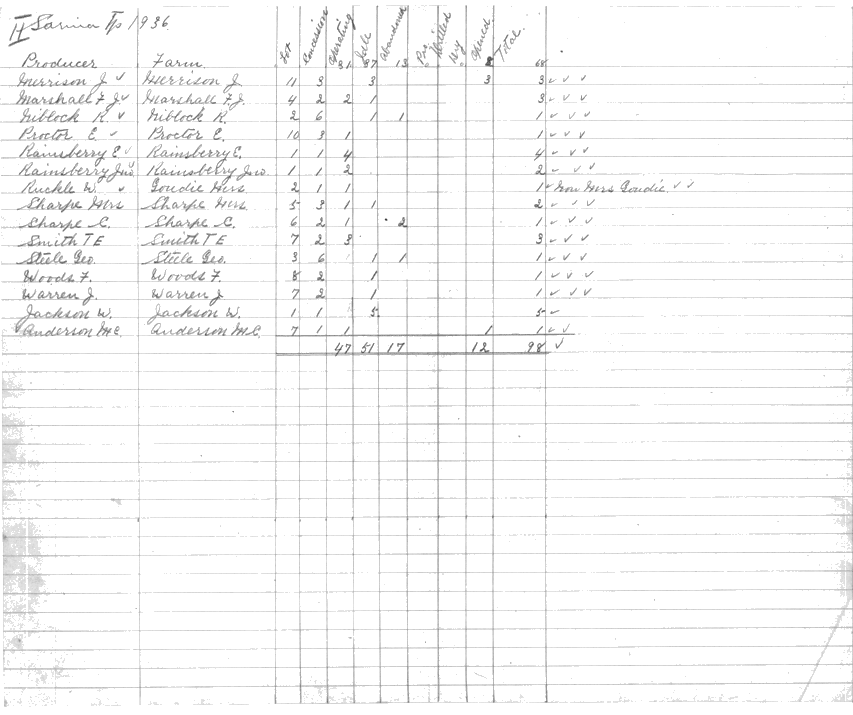 II Sarnia Tp 1936
Producer Farm Lot Concession Operating Idle Abandoned Drilled Dry Opened Total
31 37 13 68
Merrison J. ✓ Merrison J. 11 3 3 3 3 ✓ ✓ ✓
Marshall F J ✓ Marshall F. J. 4 2 2 1 3 ✓ ✓ ✓
Niblock R. ✓ Niblock R. 2 6 1 1 1 ✓ ✓ ✓
Proctor E. ✓ Proctor E. 10 3 1 1 ✓ ✓ ✓
Rainsberry E ✓ Rainsberry E. 1 1 4 4 ✓ ✓ ✓
Rainsberry Jno. ✓ Rainsberry Jno. 1 1 2 2 ✓ ✓ ✓
Ruckle W. ✓ Goudie Mrs 2 1 1 1 ✓ Now Mrs Goudie ✓ ✓
Sharpe Mrs Sharpe Mrs. 5 3 1 1 2 ✓ ✓ ✓
Sharpe C. Sharpe C. 6 2 1 2 1 ✓ ✓ ✓
Smith T E Smith T E 7 2 3 3 ✓ ✓ ✓
Steele Geo. Steele Geo. 3 6 1 1 1 ✓ ✓ ✓
Woods F. Woods F. 8 2 1 1 ✓ ✓ ✓
Warren J. Warren J 7 2 1 1 ✓ ✓ ✓
Jackson W. Jackson W. 1 1 5 5 ✓
✓ Anderson M.C. Anderson M.C. 7 1 1 1 1 ✓ ✓
47 51 17 12 98 ✓